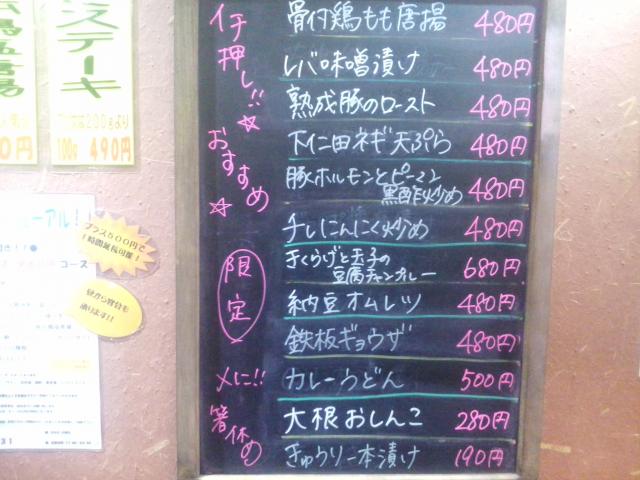 イチ押し!!☆
おすすめ☆
限定
〆に!!
箸休め
骨付鶏もも唐揚 480円
レバ味噌漬け 480円
熟成豚のロースト 480円
下仁田ネギ天ぷら 480円
豚ホルモンとピーマン
黒酢炒め 480円
チレにんにく炒め 480円
きくらげと玉子の
豆腐チャンプルー 680円
納豆オムレツ 480円
鉄板ギョウザ 480円
カレーうどん 500円
大根おしんこ 280円
きゅうり一本漬け 190円
ステーキ
100g 490円
プラス500円で
1時間延長可能!
昼から宴会も
承ります!!
コース